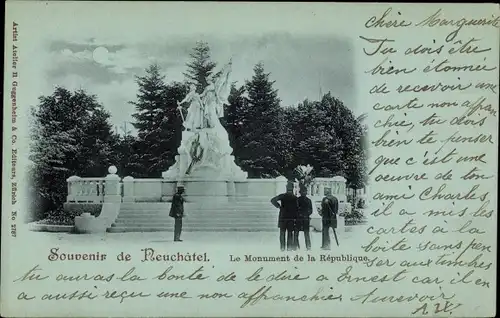 Artist Atelier H. Guggenheim & Co., Editeurs, Zürich No 1787
chère Marguerite
Tu dois être
bien étonnée
de recevoir
une carte non affran
chie, tu dois
bien te penser
que c'est une
œuvre de ton
ami Charles,
il a mis les
cartes à la
boîte sans pen
ser aux timbres
Souvenir de Neuchâtel.
Le Monument de la République.
tu auras la bonté de le dire à Ernest car, il en
a aussi reçu une non affranchie. Au revoir